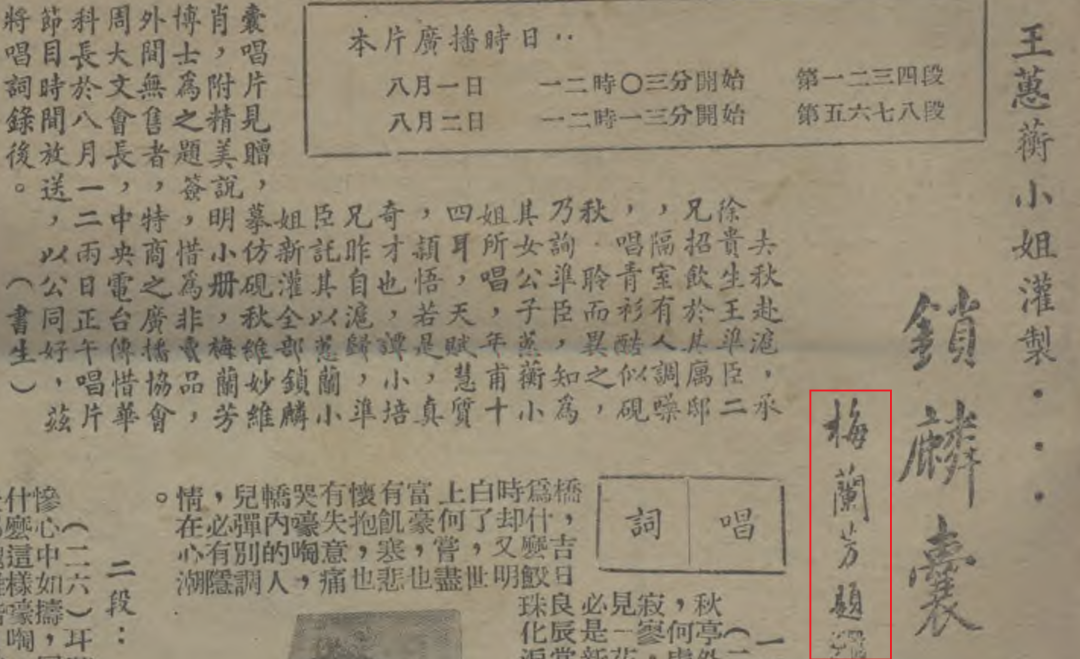 王蕙蘅小姐灌製・・・
鎖麟囊
梅蘭芳題
本片廣播時日：
八月一日　一二時〇三分開始　第一二三四段
八月二日　一二時一三分開始　第五六七八段
去秋赴滬，承
徐貴生王準臣二
兄招飲於其厲邸
，隔室有人調嗓
，唱青衫酷似硯
秋．聆而異之，
乃詢準臣，知為
其女公子蕙蘅小
姐所唱，年甫十
四耳，天賦慧質
，頴悟若是，真
奇才也，譚小培
兄昨自滬歸，準
臣託其以蕙蘭小
姐新灌全部鎖麟
囊唱片見贈，摹仿硯秋維妙維
肖，附精美說明小册，梅蘭芳
博士為之題簽，惜為非賣品，
外間無售者，特商之廣播協會
周大文會長，中央電台傳惜華
科長於八月一二兩日正午唱片
節目時間放送，以公同好，茲
將唱詞錄後。（書生）
唱詞
一
秋亭外
，何處
寂寥
見一花
必是新
橋，吉日良辰當
爲什麼鮫珠化淚
時却又明
白了世
上何嘗盡
富豪也
有飢寒悲
懷抱，也
有失意痛
哭嚎啕
轎內的人
兒彈別調
，必有隱
情在心潮。
二段：
（二六）耳
慘心中如擣，
什麼這樣嚎啕